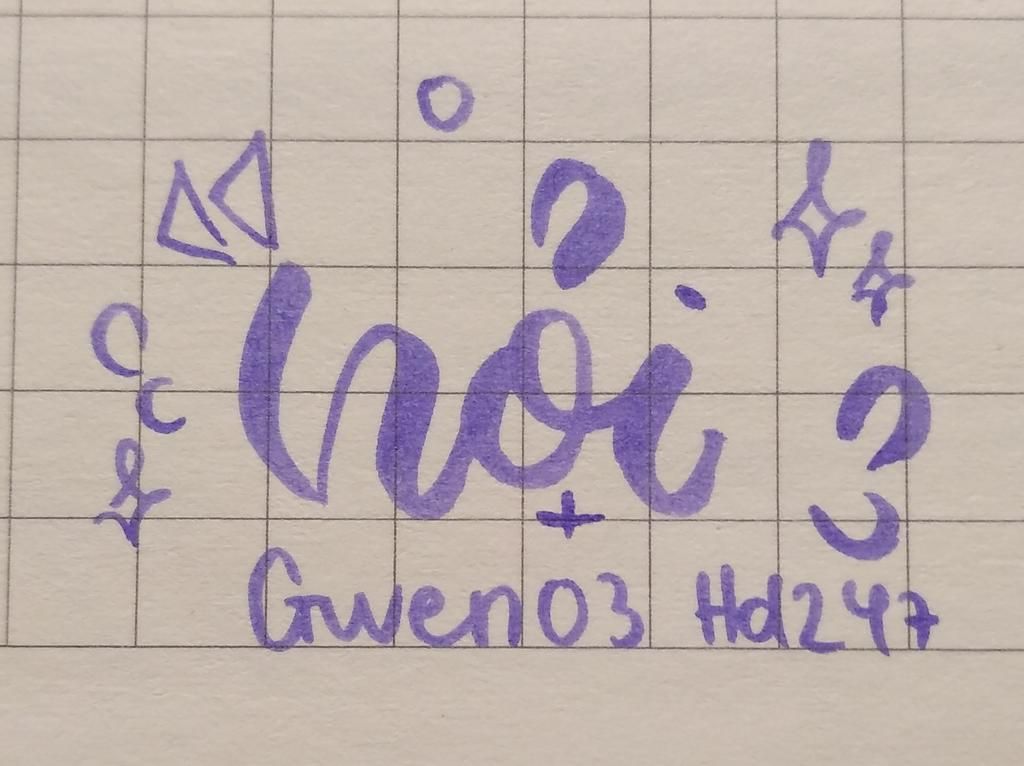 hỏi
Gwen03 Hd247